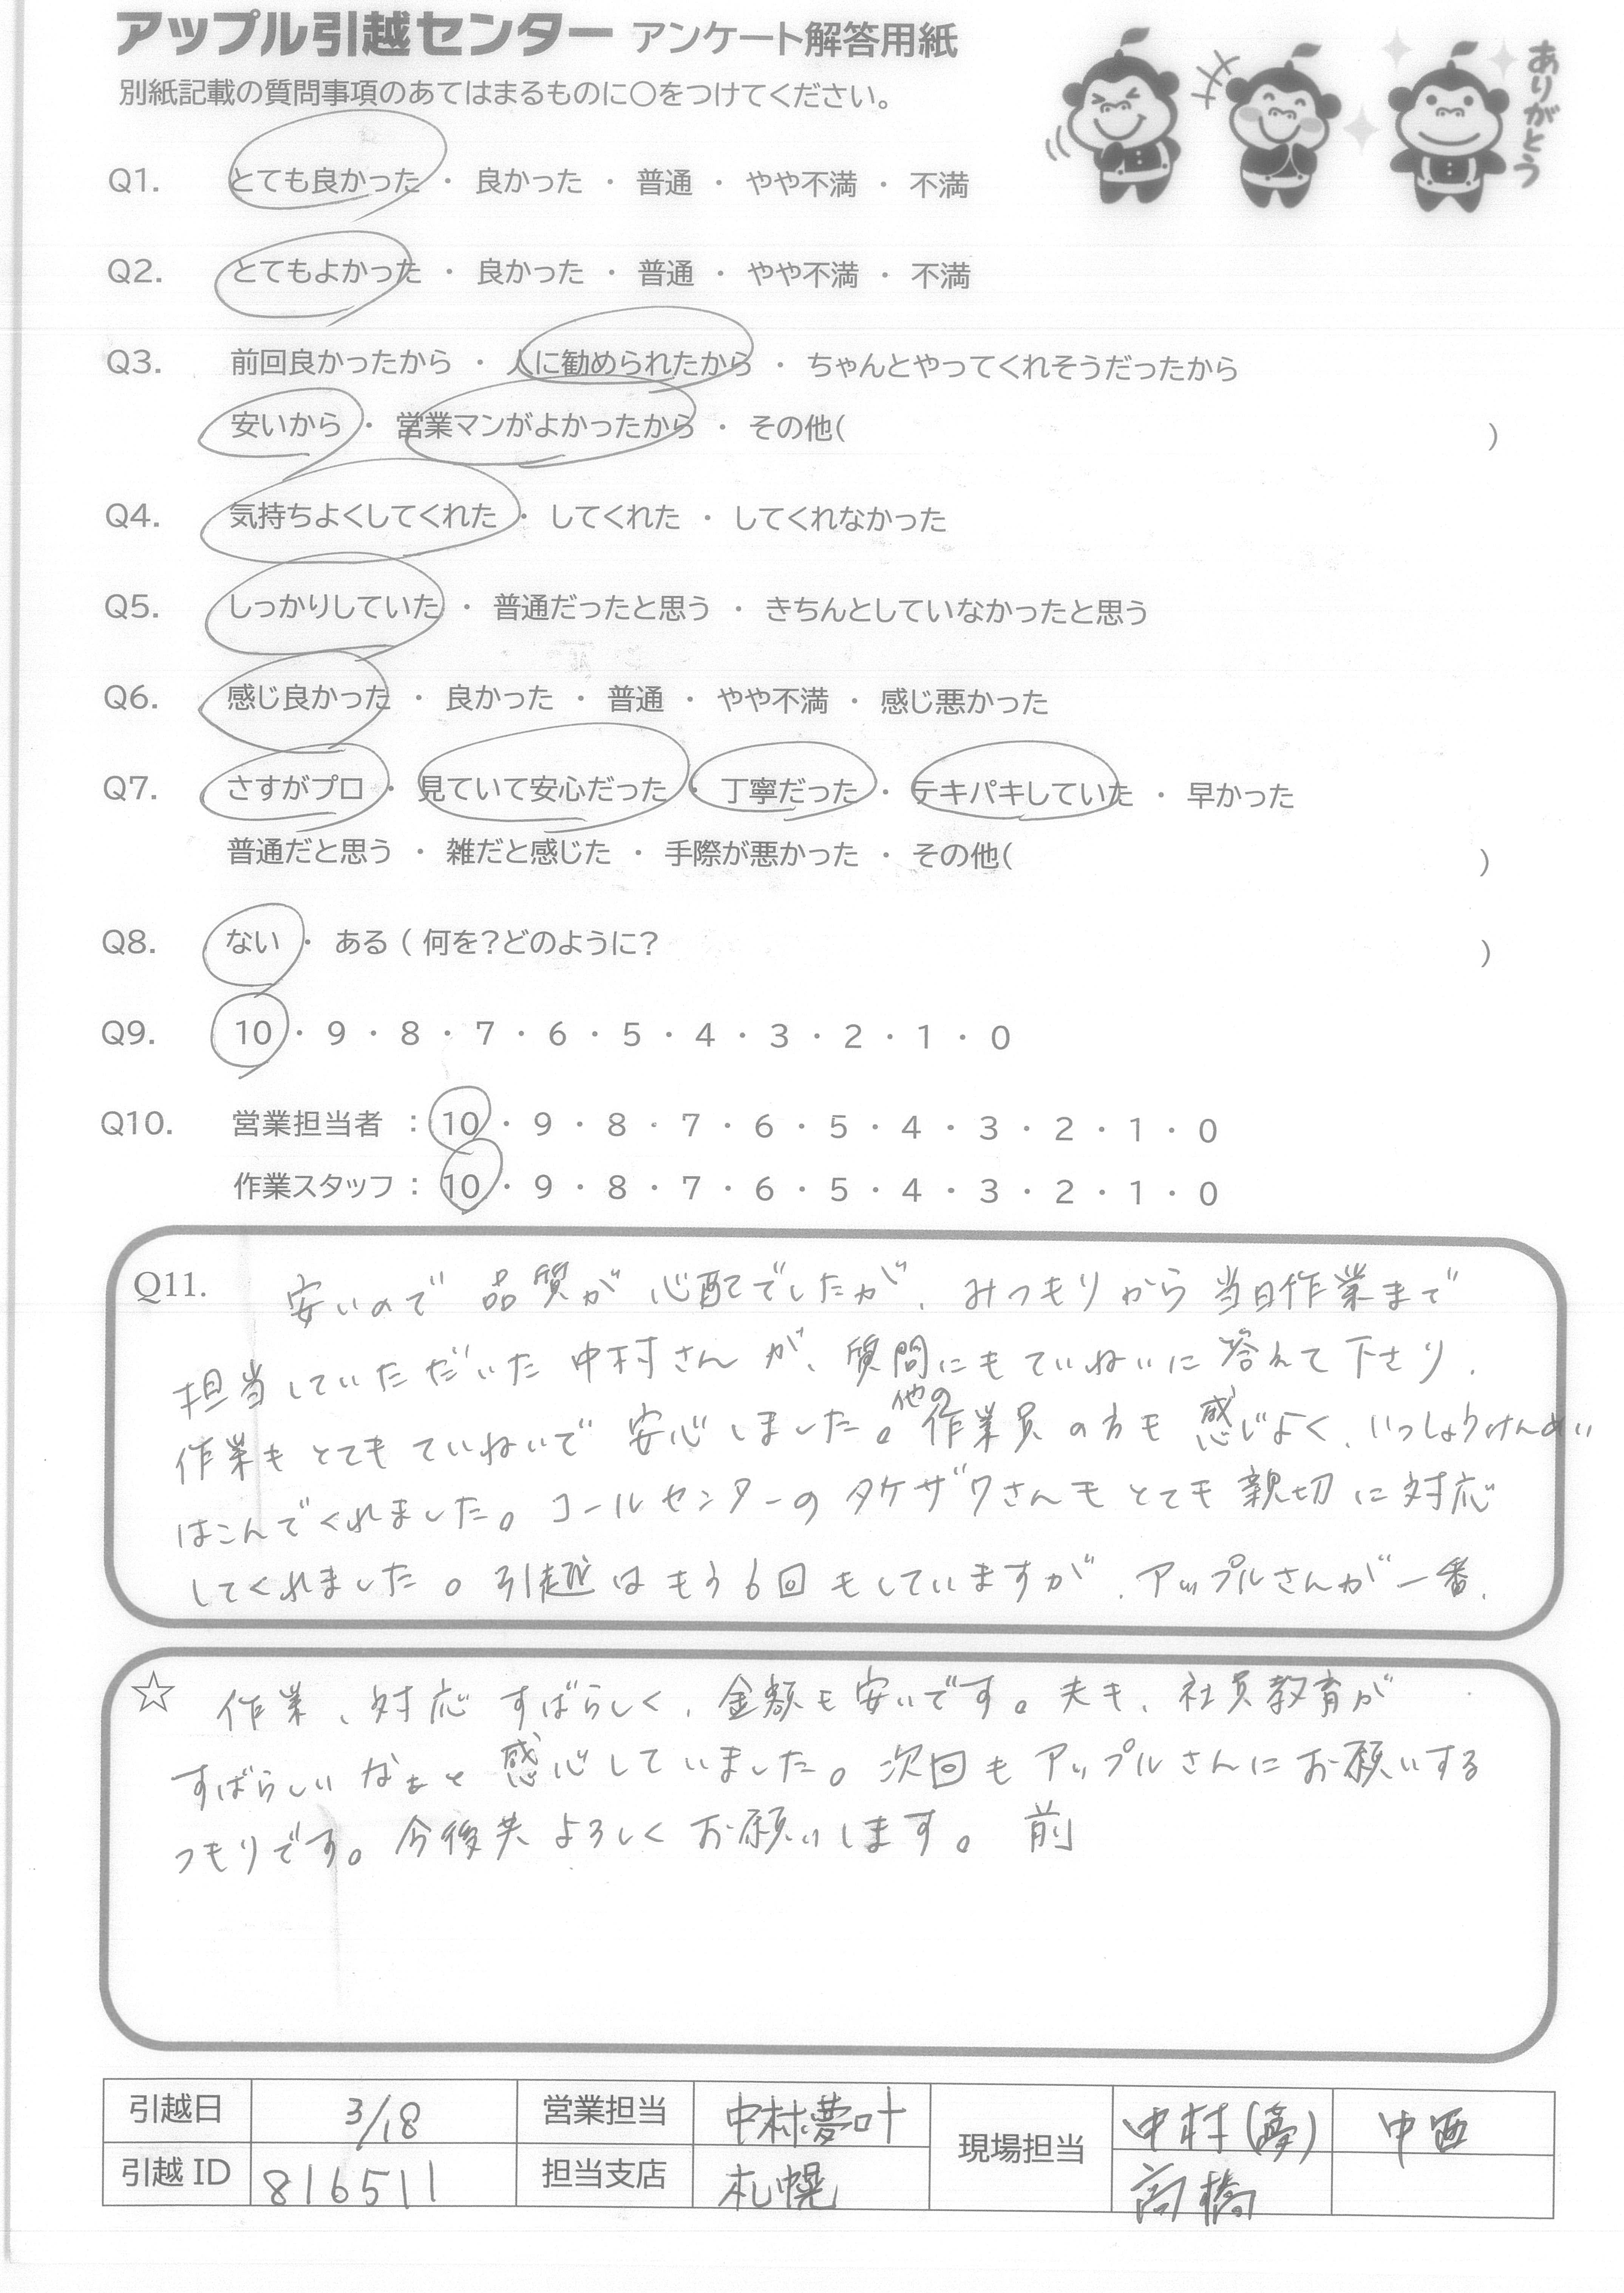 アップル引越センター アンケート解答用紙
別紙記載の質問事項のあてはまるものに〇をつけてください。
ありがとう
Q1. とても良かった ・ 良かった ・ 普通 ・ やや不満 ・ 不満
Q2. とてもよかった ・ 良かった ・ 普通 ・ やや不満 ・ 不満
Q3. 前回良かったから ・ 人に勧められたから ・ ちゃんとやってくれそうだったから
安いから ・ 営業マンがよかったから ・ その他( )
Q4. 気持ちよくしてくれた ・ してくれた ・ してくれなかった
Q5. しっかりしていた ・ 普通だったと思う ・ きちんとしていなかったと思う
Q6. 感じ良かった ・ 良かった ・ 普通 ・ やや不満 ・ 感じ悪かった
Q7. さすがプロ ・ 見ていて安心だった ・ 丁寧だった ・ テキパキしていた ・ 早かった
普通だと思う ・ 雑だと感じた ・ 手際が悪かった ・ その他( )
Q8. ない ・ ある ( 何を?どのように? )
Q9. 10 ・ 9 ・ 8 ・ 7 ・ 6 ・ 5 ・ 4 ・ 3 ・ 2 ・ 1 ・ 0
Q10. 営業担当者 : 10 ・ 9 ・ 8 ・ 7 ・ 6 ・ 5 ・ 4 ・ 3 ・ 2 ・ 1 ・ 0
作業スタッフ : 10 ・ 9 ・ 8 ・ 7 ・ 6 ・ 5 ・ 4 ・ 3 ・ 2 ・ 1 ・ 0
Q11. 安いので品質が心配でしたが、みつもりから当日作業まで
担当していただいた中村さんが、質問にもていねいに答えて下さり、
作業もとてもていねいで安心しました。他の作業員の方も感じよく、いっしょうけんめい
はこんでくれました。コールセンターのタケザワさんもとても親切に対応
してくれました。引越はもう6回もしていますが、アップルさんが一番、
☆ 作業、対応すばらしく、金額も安いです。夫も、社員教育が
すばらしいなぁと感心していました。次回もアップルさんにお願いする
つもりです。今後共よろしくお願いします。 前
引越日 3/18 営業担当 中村夢叶 現場担当 中村(夢) 中西
引越 ID 816511 担当支店 札幌 高橋